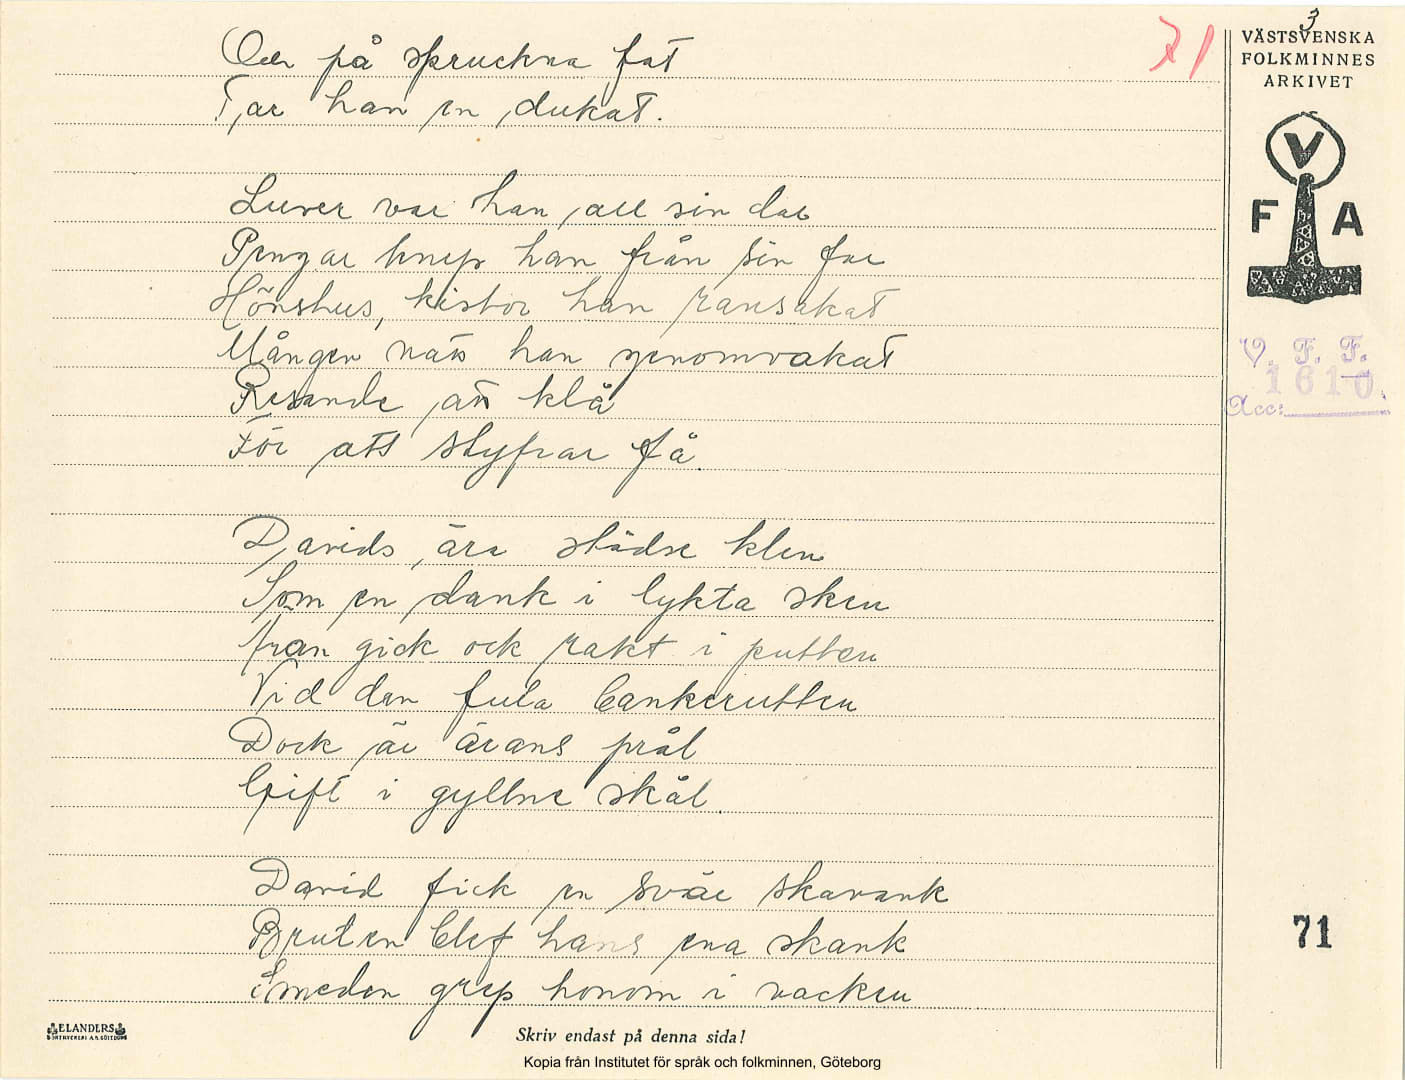 3
71
VÄSTSVENSKA
FOLKMINNES
ARKIVET
V
F A
V. F. F.
1610
Acc:
Och på spruckna fat
Tar han en dukat.
Luver var han all sin dar
Pengar knep han från sin far
Hönshus, kistor han ransakat
Mången natt han genomvakat
Resande att klå
För att styfrar få.
Davids ära städse klen
Som en dank i lykta sken
från gick ock rakt i putten
Vid den fula bankerutten
Dock är ärans prål
Gift i gyllne skål.
David fick en svår skavank
Bruten blef hans ena skank
Smeden grep honom i nacken
71
ELANDERS
Skriv endast på denna sida!
Kopia från Institutet för språk och folkminnen, Göteborg